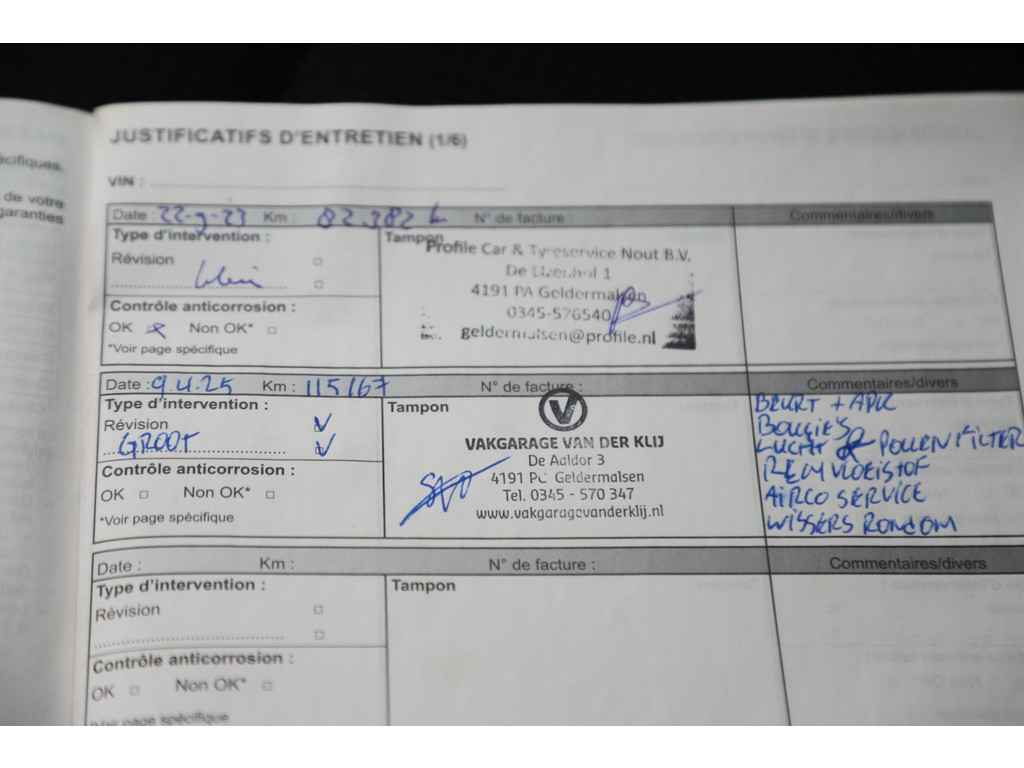 écifiques.
de votre
garanties
JUSTIFICATIFS D'ENTRETIEN (1/6)
VIN :
Date : 22-9-23 Km : 82.382 N° de facture Commentaires/divers
Type d'intervention : Tampon
Révision
Profile Car & Tyreservice Nout B.V.
4191 PA Geldermalsen
0345-576540
geldermalsen@profile.nl
Contrôle anticorrosion :
OK Non OK*
*Voir page spécifique
Date : 9.4.25 Km : 115167 N° de facture : Commentaires/divers
Type d'intervention : Tampon
Révision
GROOT
Contrôle anticorrosion :
OK Non OK*
*Voir page spécifique
V
VAKGARAGE VAN DER KLIJ
De Aaldor 3
4191 PC Geldermalsen
Tel. 0345 - 570 347
www.vakgaragevanderklij.nl
BEURT + APK
BOUGIES
LUCHT & POLLENFILTER
REMVLOEISTOF
AIRCO SERVICE
WISSERS RONDOM
Date : Km : N° de facture : Commentaires/divers
Type d'intervention : Tampon
Révision
Contrôle anticorrosion :
OK Non OK*
*Voir page spécifique